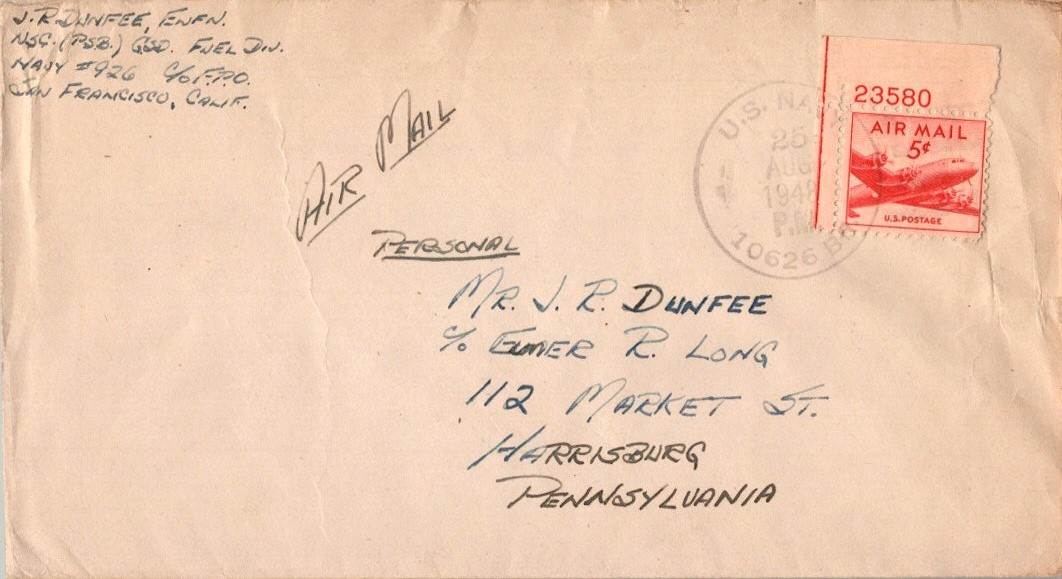 J. R. DUNFEE, ENFN.
NSC. (PSB.) GSD. FUEL DIV.
NAVY #926 C/O F.P.O.
SAN FRANCISCO, CALIF.
AIR MAIL
U.S. NAVY
25
AUG
1948
P.M.
10626 BR
23580
AIR MAIL
5¢
U.S. POSTAGE
PERSONAL
MR. J. R. DUNFEE
C/O ELMER R. LONG
112 MARKET ST.
HARRISBURG
PENNSYLVANIA